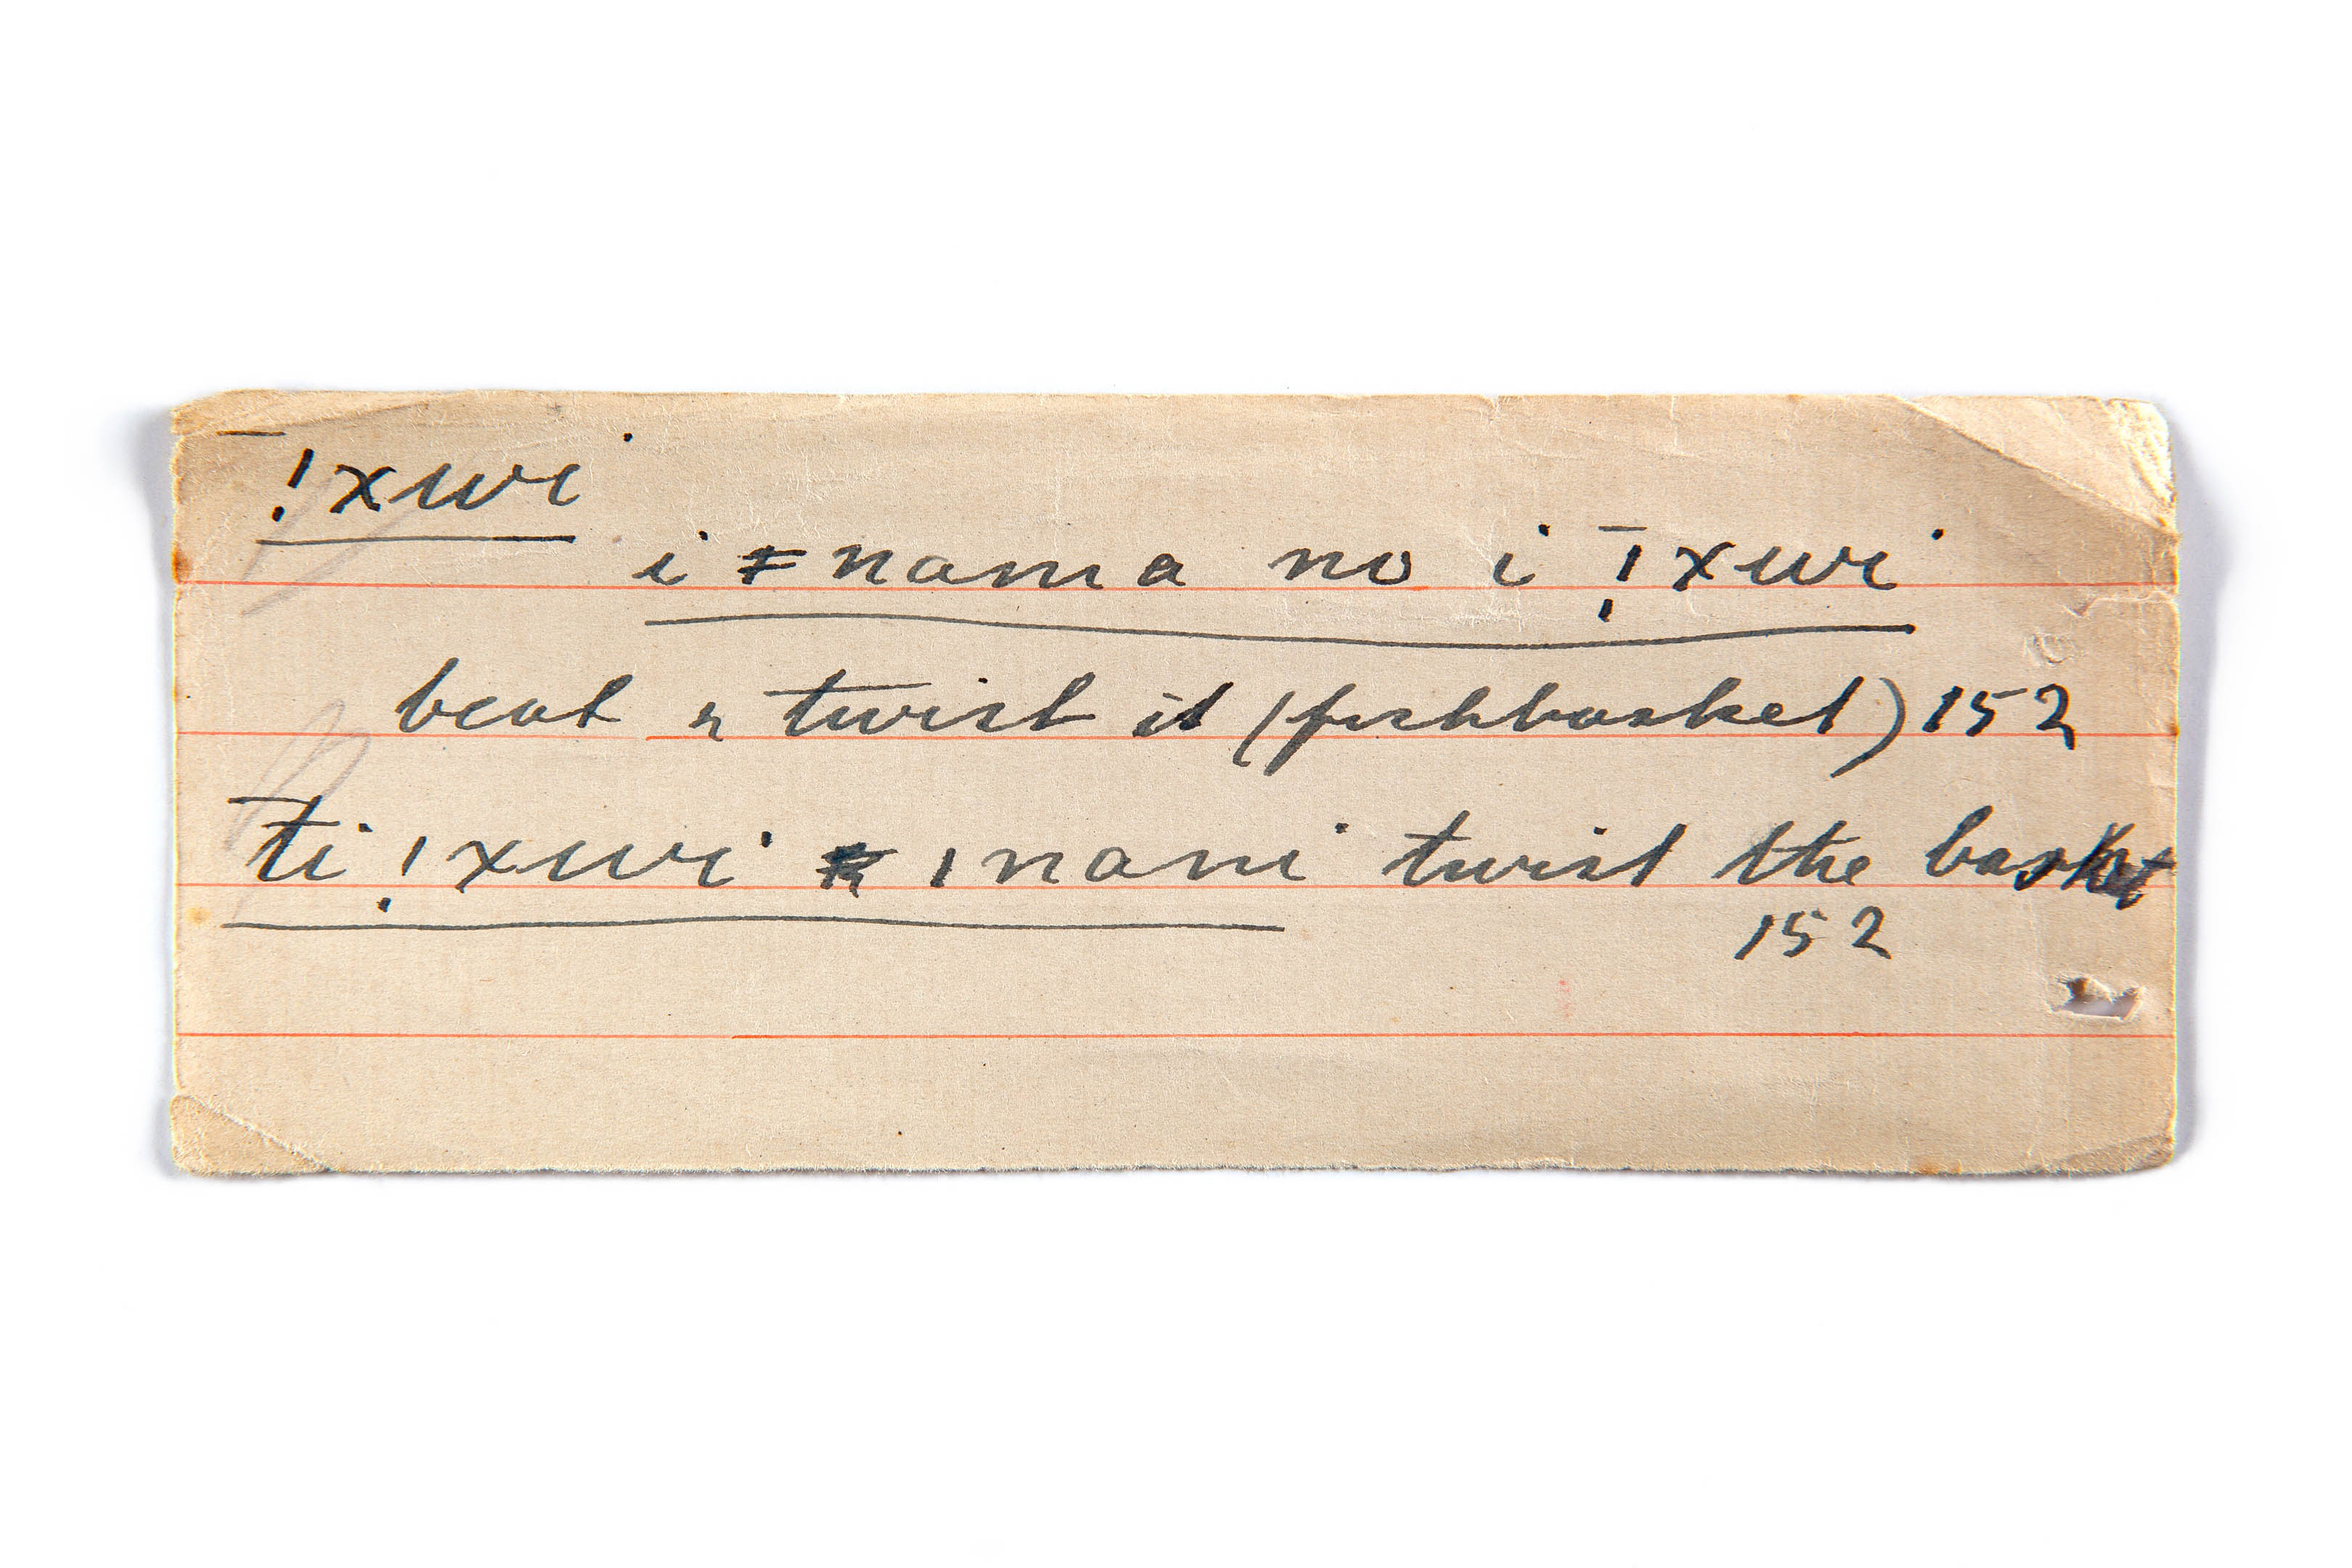 ¯!xwi
i ǂnama no i ¯!xwi
beat & twist it (fishbasket) 152
¯ti !xwi ǀnani twist the basket
152